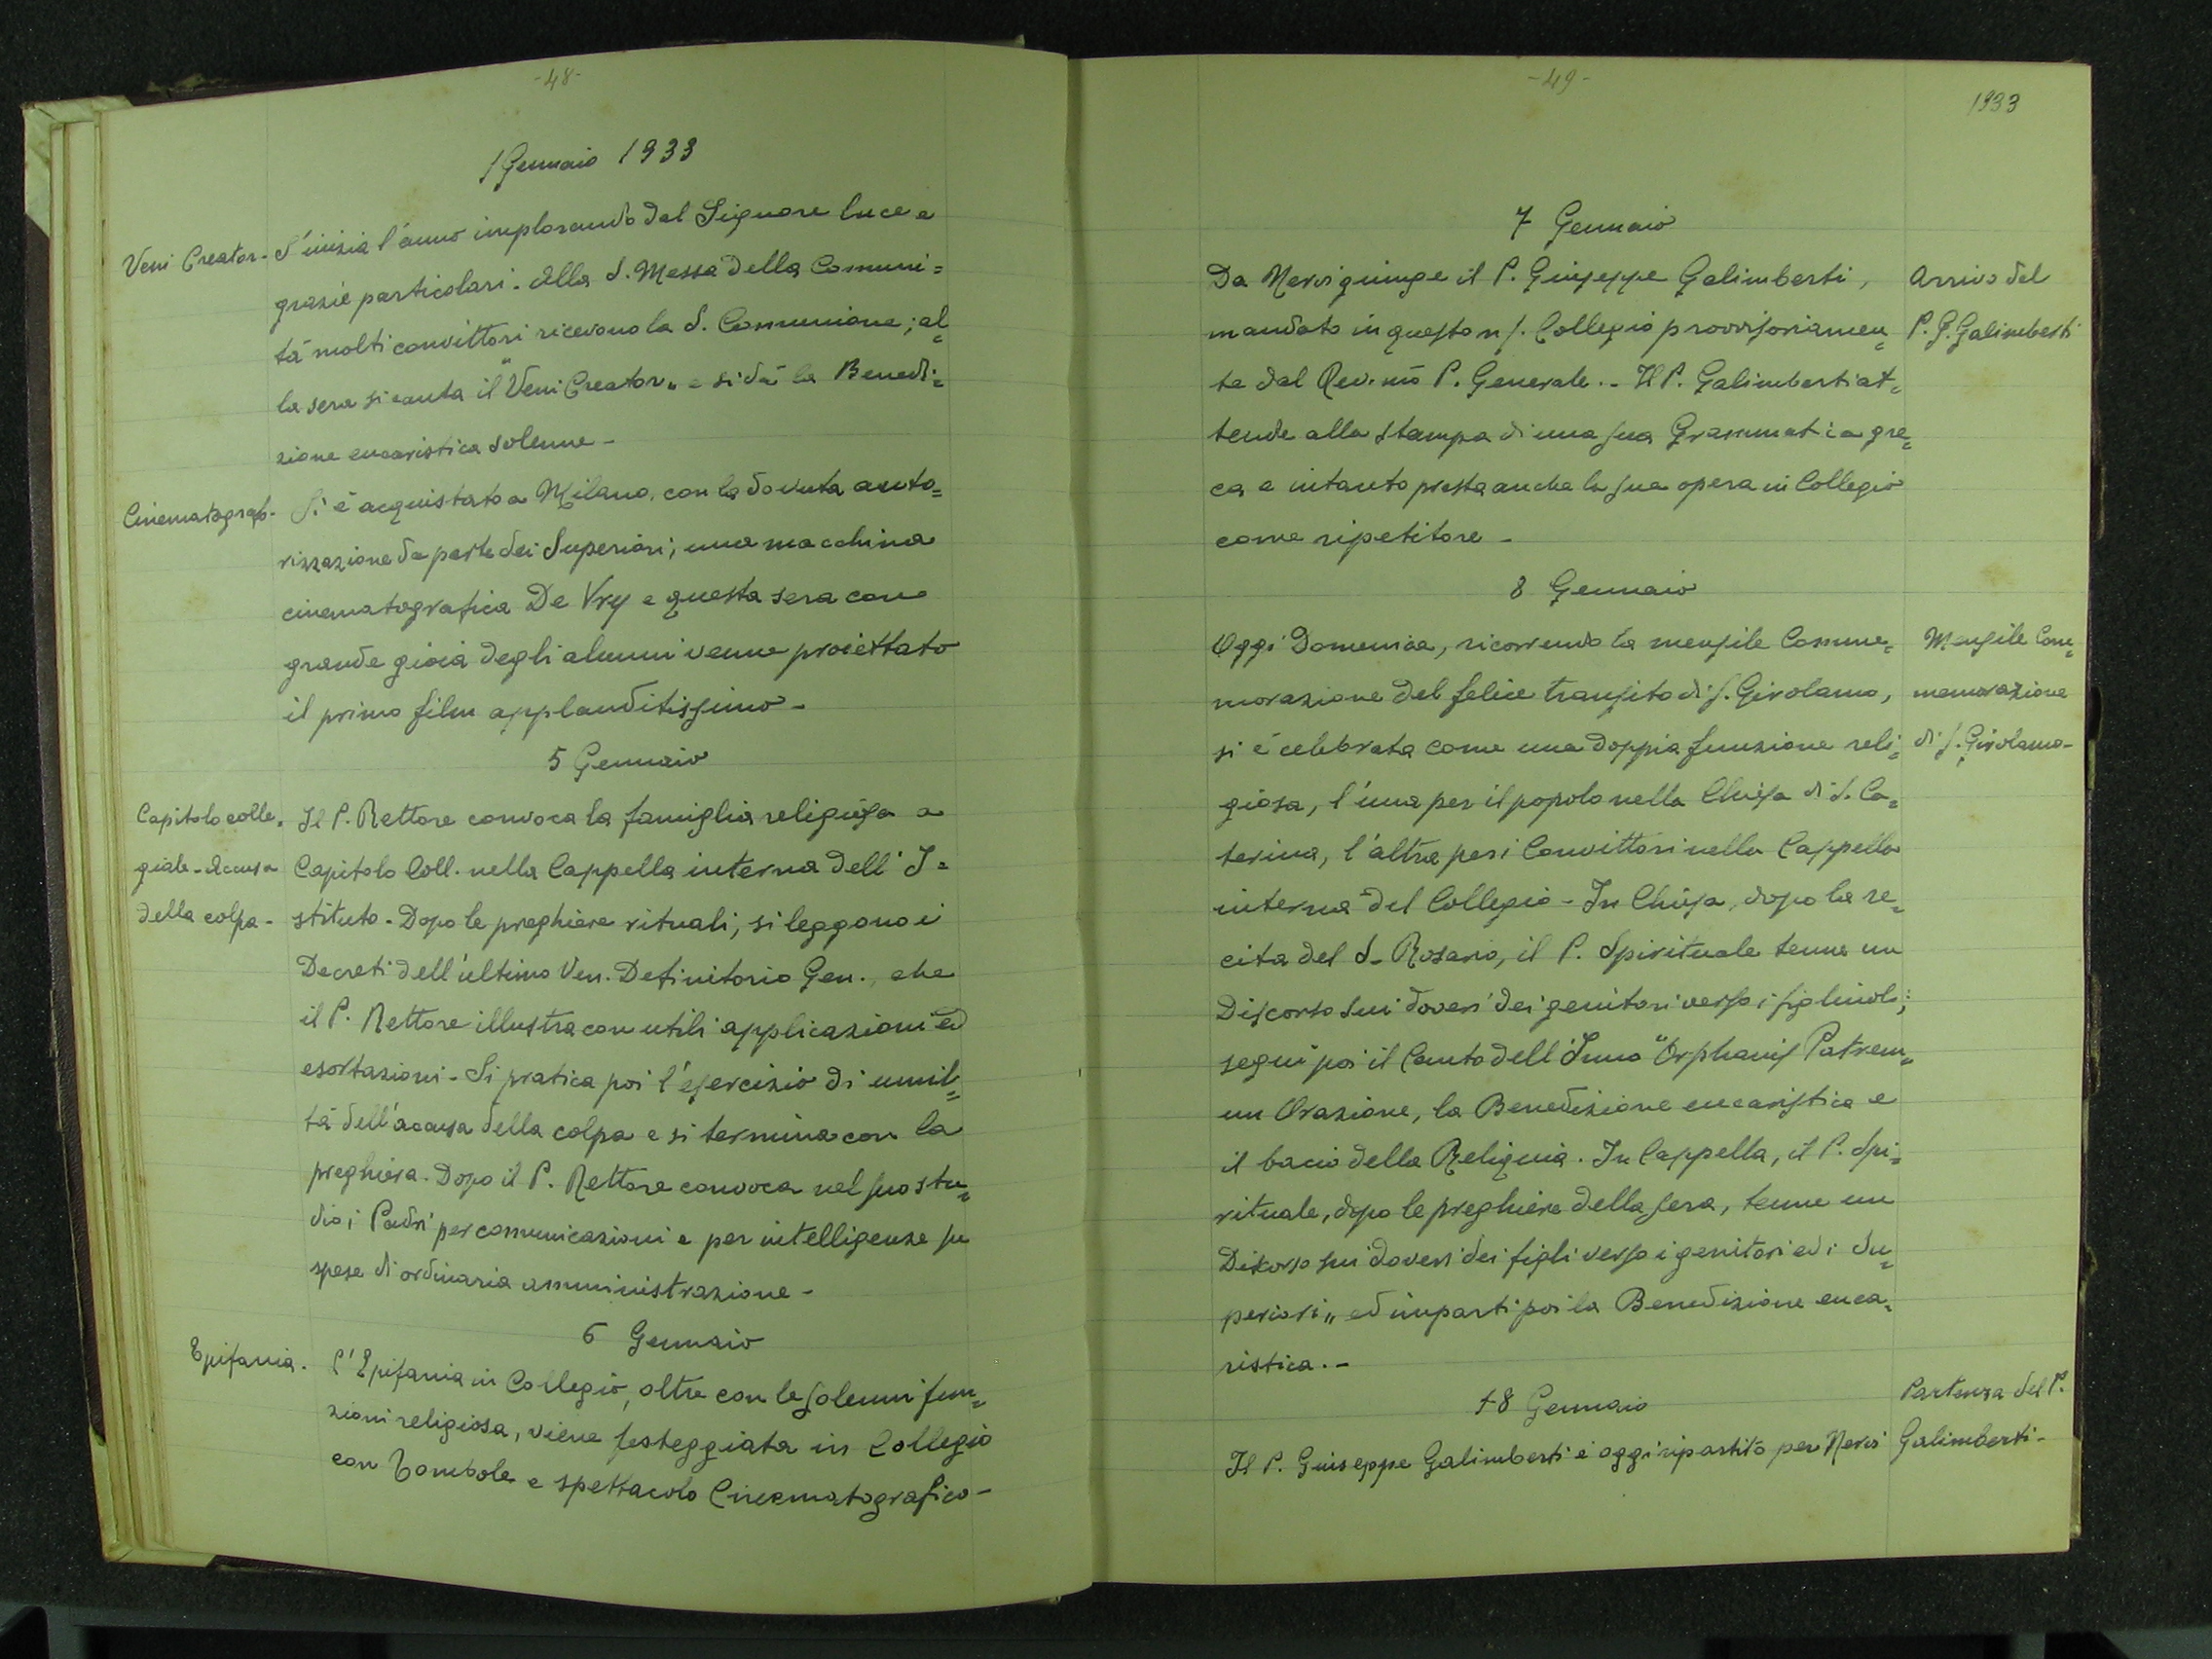 -48-
1 Gennaio 1933
Veni Creator - S'inizia l'anno implorando dal Signore luce e
grazie particolari. Alla S. Messa della Comuni=
tà molti convittori ricevono la S. Comunione; al=
la sera si canta il "Veni Creator" e si dà la Benedi=
zione eucaristica solenne -
Cinematograf. - Si è acquistato a Milano, con la dovuta auto=
rizzazione da parte dei Superiori, una macchina
cinematografica De Vry e questa sera con
grande gioia degli alunni venne proiettato
il primo film applauditissimo -
5 Gennaio
Capitolo colle= Il P. Rettore convoca la famiglia religiosa a
giale - Accusa Capitolo Coll. nella Cappella interna dell'I=
della colpa - stituto - Dopo le preghiere rituali, si leggono i
Decreti dell'ultimo Ven. Definitorio Gen., che
il P. Rettore illustra con utili applicazioni ed
esortazioni - Si pratica poi l'esercizio di umil=
tà dell'accusa della colpa e si termina con la
preghiera. Dopo il P. Rettore convoca nel suo stu=
dio i Padri per comunicazioni e per intelligenze su
spese di ordinaria amministrazione -
6 Gennaio
Epifania. L'Epifania in Collegio, oltre con le solenni fun=
zioni religiosa, viene festeggiata in Collegio
con Tombole e spettacolo Cinematografico -
-49-
1933
7 Gennaio
Da Nervi giunge il P. Giuseppe Galimberti, Arrivo del
mandato in questo n/. Collegio provvisoriamen= P. G. Galimberti
te dal Rev.mo P. Generale. - Il P. Galimberti at=
tende alla stampa di una sua Grammatica gre=
ca e intanto presta anche la sua opera in Collegio
come ripetitore -
8 Gennaio
Oggi Domenica, ricorrendo la mensile Comme= Mensile Com=
morazione del felice transito di S. Girolamo, memorazione
si è celebrata come una doppia funzione reli= di S. Girolamo -
giosa, l'una per il popolo nella Chiesa di S. Ca=
terina, l'altra per i Convittori nella Cappella
interna del Collegio - In Chiesa, dopo la re=
cita del S. Rosario, il P. Spirituale tenne un
Discorso sui doveri dei genitori verso i figliuoli;
seguì poi il Canto dell'Inno "Orphanis Patrem"
un Orazione, la Benedizione eucaristica e
il bacio della Reliquia. In Cappella, il P. Spi=
rituale, dopo le preghiere della sera, tenne un
Discorso sui doveri dei figli verso i genitori ed i Su=
periori" ed impartì poi la Benedizione euca=
ristica. -
18 Gennaio Partenza del P.
Il P. Giuseppe Galimberti è oggi ripartito per Nervi Galimberti -